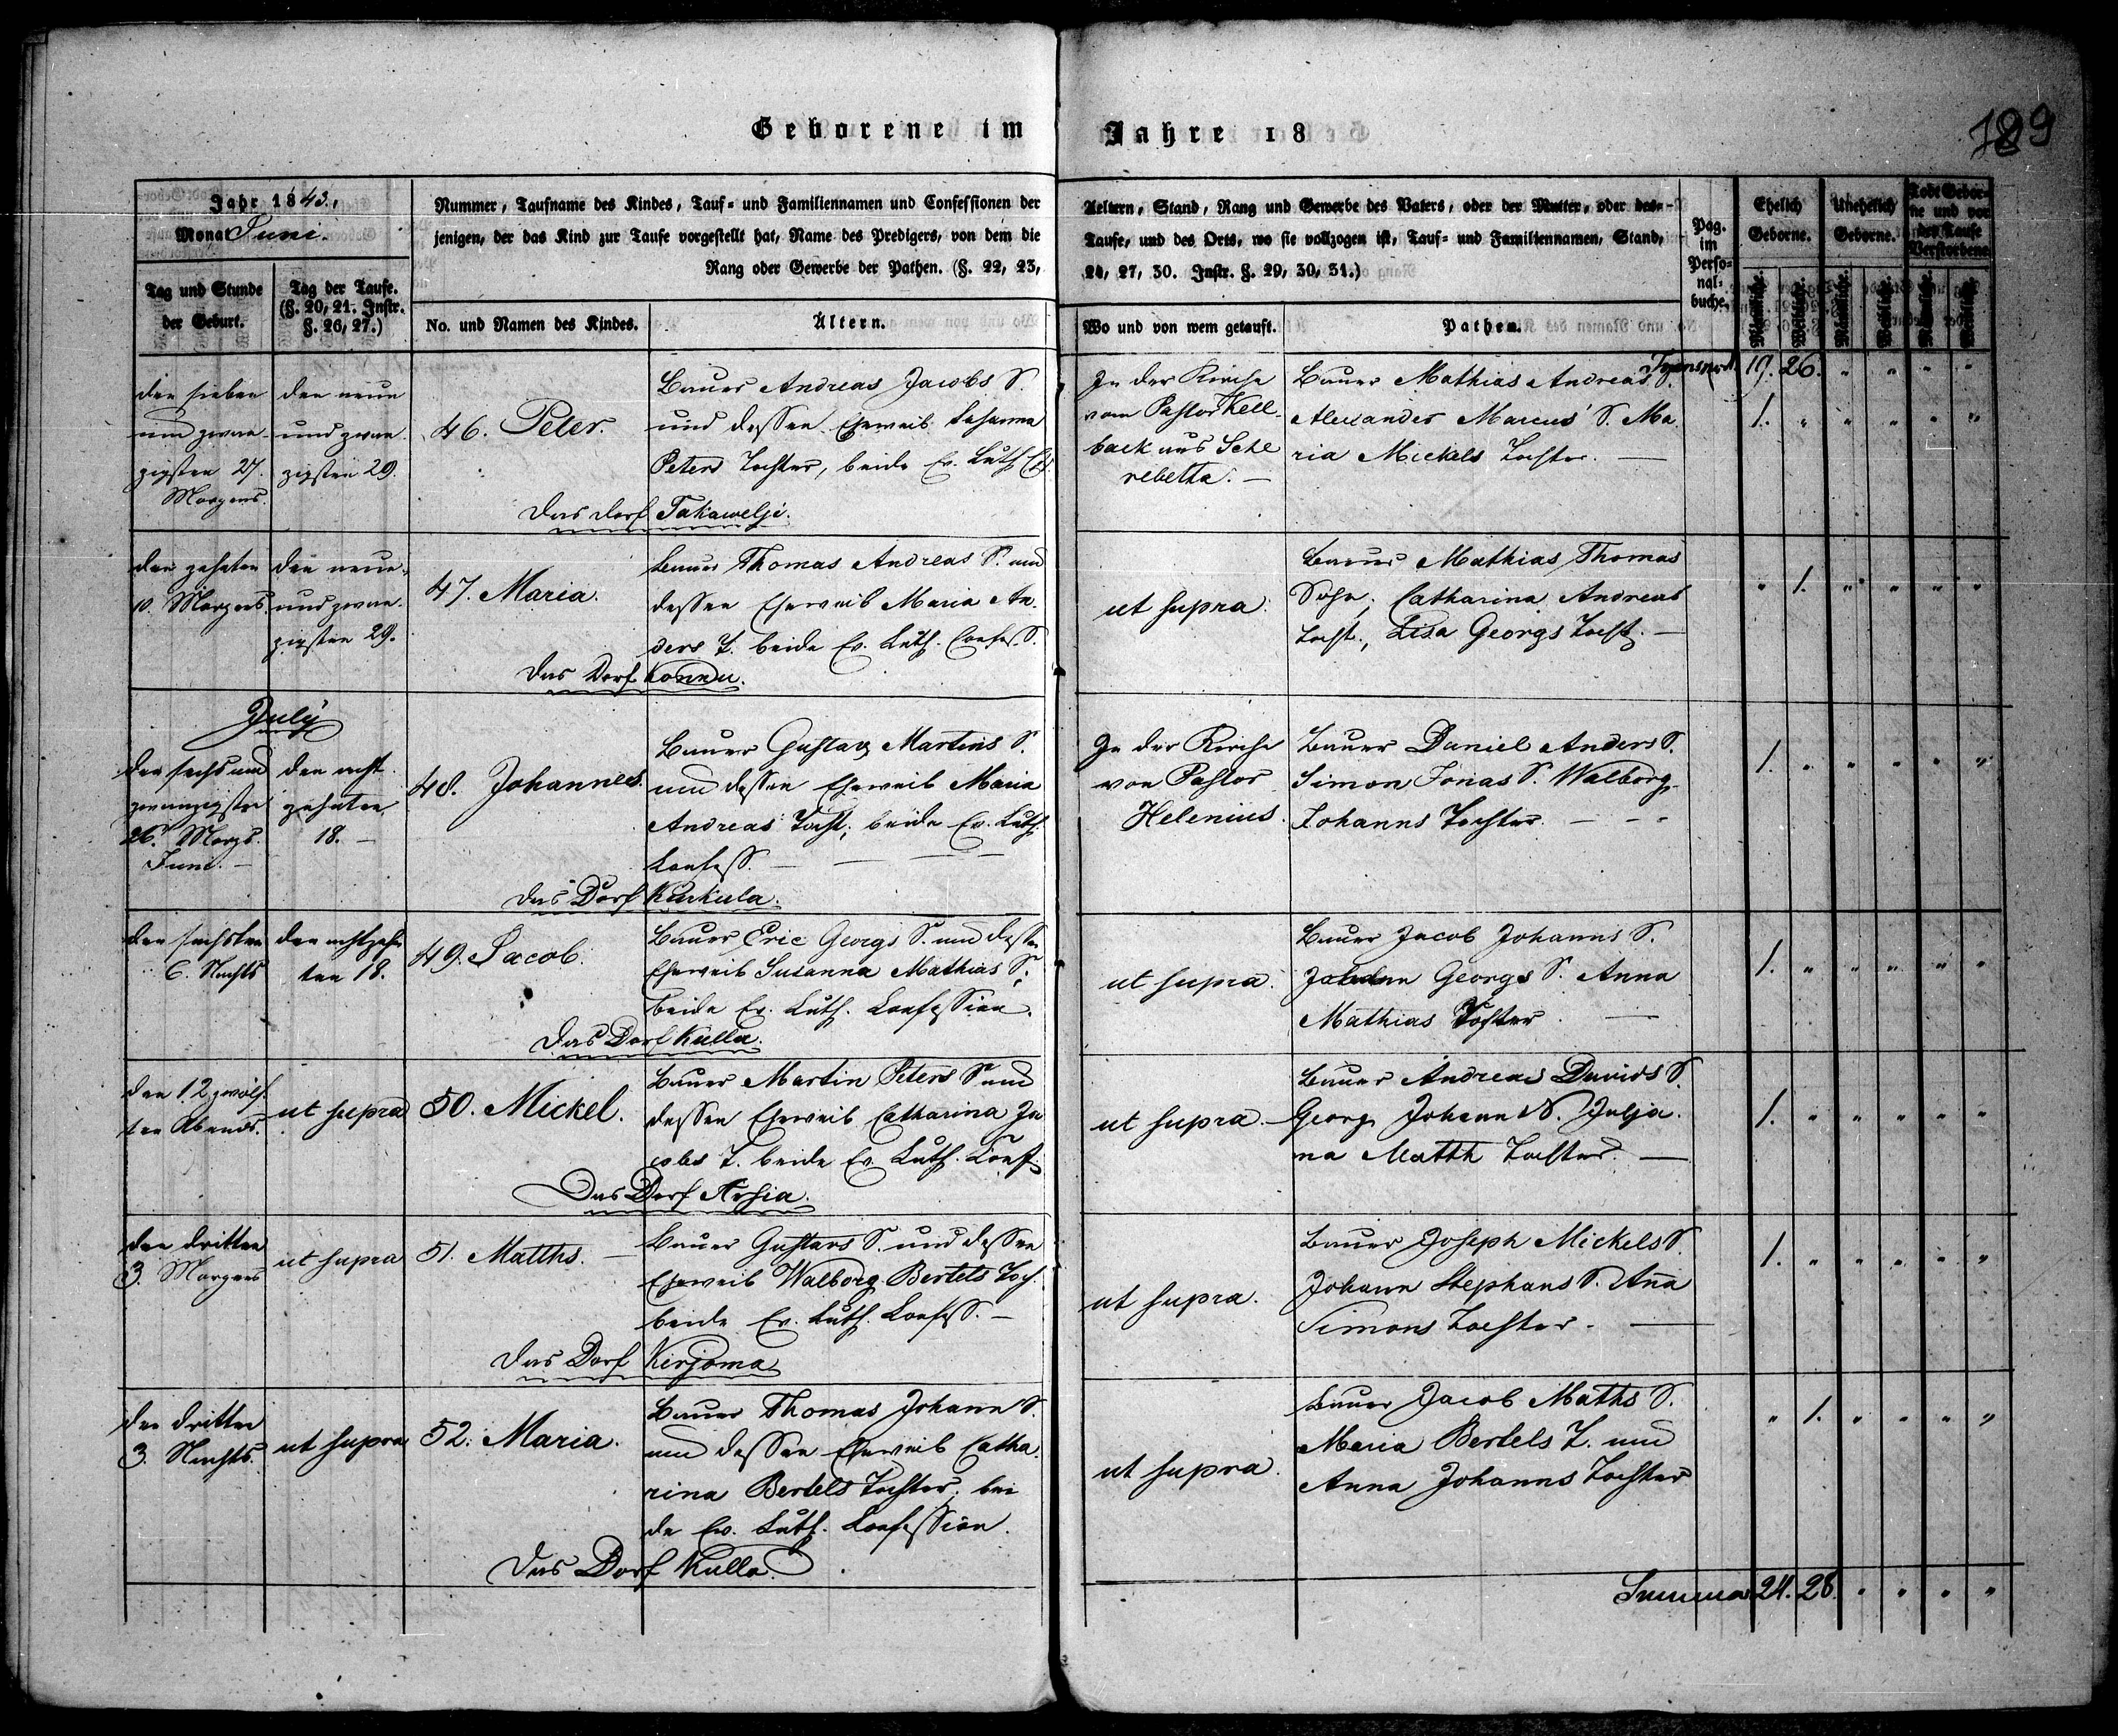 Geborene im Jahre 18
189
Jahr 1843.,
Monat Juni.
Tag und Stunde
der Geburt.
Tag der Taufe.
(§. 20, 21. Instr.
§. 26, 27.)
Nummer, Taufname des Kindes, Tauf- und Familiennamen und Confessionen der
jenigen, der das Kind zur Taufe vorgestellt hat, Name des Predigers, von dem die
Rang oder Gewerbe der Pathen. (§. 22, 23,
No. und Namen des Kindes.
Ältern.
Aeltern, Stand, Rang und Gewerbe des Vaters, oder der Mutter, oder des-
Taufe, und des Orts, wo sie vollzogen ist, Tauf- und Familiennamen, Stand,
24, 27, 30. Instr. §. 29, 30, 31.)
Wo und von wem getauft.
Pathen.
Pag.
im
Perso-
nal-
buche.
Ehelich
Geborne.
Unehelich
Geborne.
Todt Gebor-
ne und vor
der Taufe
Verstorbene
Männliche.
Weibliche.
Männliche.
Weibliche.
Männliche.
Weibliche.
Transport 19. 26. " " " "
den sieben
und zwan-
zigsten 27.
Morgens.
den neun
und zwan-
zigsten 29.
46. Peter.
Bauer Andreas Jacobs S.
und dessen Eheweib Susanna
Peters Tochter, beide Ev. Luth.
Das Dorf Takawelje.
In der Kirche
vom Pastor Kell-
back aus Sche
rebetta. —
Bauer Mathias Andreas S.
Alexander Marcus' S. Ma-
ria Mickels Tochter. —
1. " " " " "
den zehnten
10. Morgens.
den neun-
und zwan-
zigsten 29.
47. Maria.
Bauer Thomas Andreas S. und
dessen Eheweib Maria An-
ders T. beide Ev. Luth. Confess.
Das Dorf Konnu.
ut supra.
Bauer Mathias Thomas
Sohn, Catharina Andreas
Tocht., Lisa Georgs Tocht. —
" 1. " " " "
July
den sechs und
zwanzigsten
26. Morgs.
Juni. —
den acht
zehnten
18. —
48. Johannes.
Bauer Gustav Martins S.
und dessen Eheweib Maria
Andreas Tocht., beide Ev. Luth.
Confess. — — —
das Dorf Kurkula.
In der Kirche
von Pastor
Helenius.
Bauer Daniel Anders S.
Simon Jonas S. Walborg
Johanns Tochter. — - -
1. " " " " "
den sechsten
6. Nachts
den achtzehn
ten 18.
49. Jacob.
Bauer Eric Georgs S. und dessen
Eheweib Susanna Mathias S.
beide Ev. Luth. Confession.
Das Dorf Kulla.
ut supra.
Bauer Jacob Johanns S.
Johann Georgs S. Anna
Mathias Tochter. —
1. " " " " "
den 12 zwölf-
ten Abends.
ut supra
50. Mickel.
Bauer Martin Peters S. und
dessen Eheweib Catharina Ja
cobs T. beide Ev. Luth. Conf.
Das Dorf Arsia.
ut supra. —
Bauer Andreas Davids S.
Georg Johann S. Julja-
na Matth Tochter —
1. " " " " "
den dritten
3. Morgens
ut supra
51. Matths. —
Bauer Gustavs S. und dessen
Eheweib Walborg Bertels Toch.
beide Ev. Luth. Confess. —
das Dorf Kirjoma
ut supra.
Bauer Joseph Mickels S.
Johann Stephans S. Aña
Simons Tochter. —
1. " " " " "
den dritten
3. Nachts.
ut supra
52. Maria.
Bauer Thomas Johann S.
und dessen Eheweib Catha
rina Bertels Tochter, bei
de Ev. Luth. Confession.
das Dorf Kulla.
ut supra.
Bauer Jacob Maths S.
Maria Bertels T. und
Anna Johanns Tochter
" 1. " " " "
Summa 24. 28. " " " "